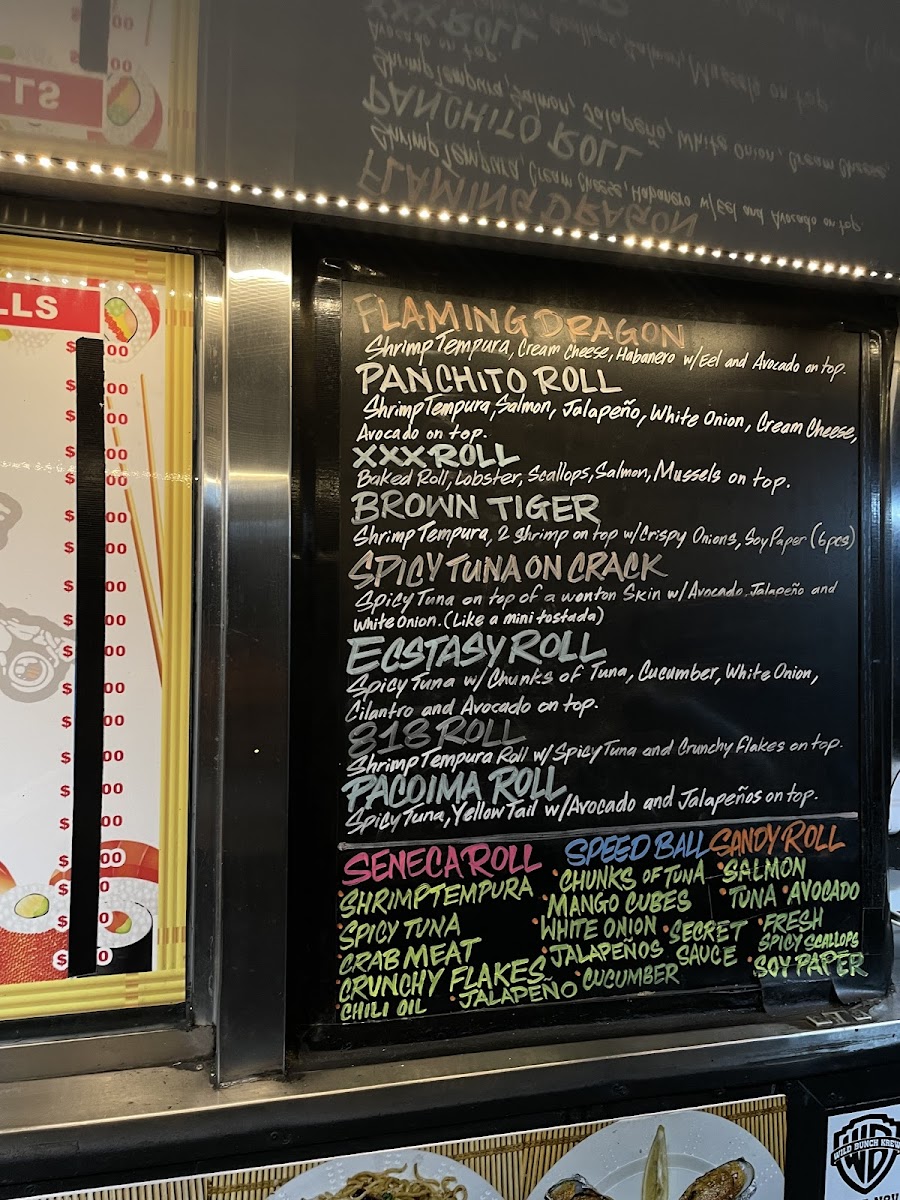 LLS
FLAMING DRAGON
Shrimp Tempura, Cream Cheese, Habanero w/Eel and Avocado on top.
PANCHITO ROLL
Shrimp Tempura, Salmon, Jalapeño, White Onion, Cream Cheese,
Avocado on top.
XXX ROLL
Baked Roll, Lobster, Scallops, Salmon, Mussels on top.
BROWN TIGER
Shrimp Tempura, 2 shrimp on top w/Crispy Onions, Soy Paper (6pcs)
SPICY TUNA ON CRACK
Spicy Tuna on top of a wonton Skin w/Avocado, Jalapeño and
White Onion. (Like a mini tostada)
ECSTASY ROLL
Spicy Tuna w/ Chunks of Tuna, Cucumber, White Onion,
Cilantro and Avocado on top.
818 ROLL
Shrimp Tempura Roll w/ Spicy Tuna and Crunchy flakes on top.
PACOIMA ROLL
Spicy Tuna, YellowTail w/Avocado and Jalapeños on top.
SENECA ROLL
•SHRIMP TEMPURA
•SPICY TUNA
•CRAB MEAT
•CRUNCHY FLAKES
•CHILI OIL •JALAPEÑO
SPEED BALL
•CHUNKS OF TUNA
•MANGO CUBES
•WHITE ONION •SECRET
•JALAPEÑOS SAUCE
•CUCUMBER
SANDY ROLL
•SALMON
•TUNA •AVOCADO
•FRESH
SPICY SCALLOPS
•SOY PAPER
WB
WILD BUNCH KREW